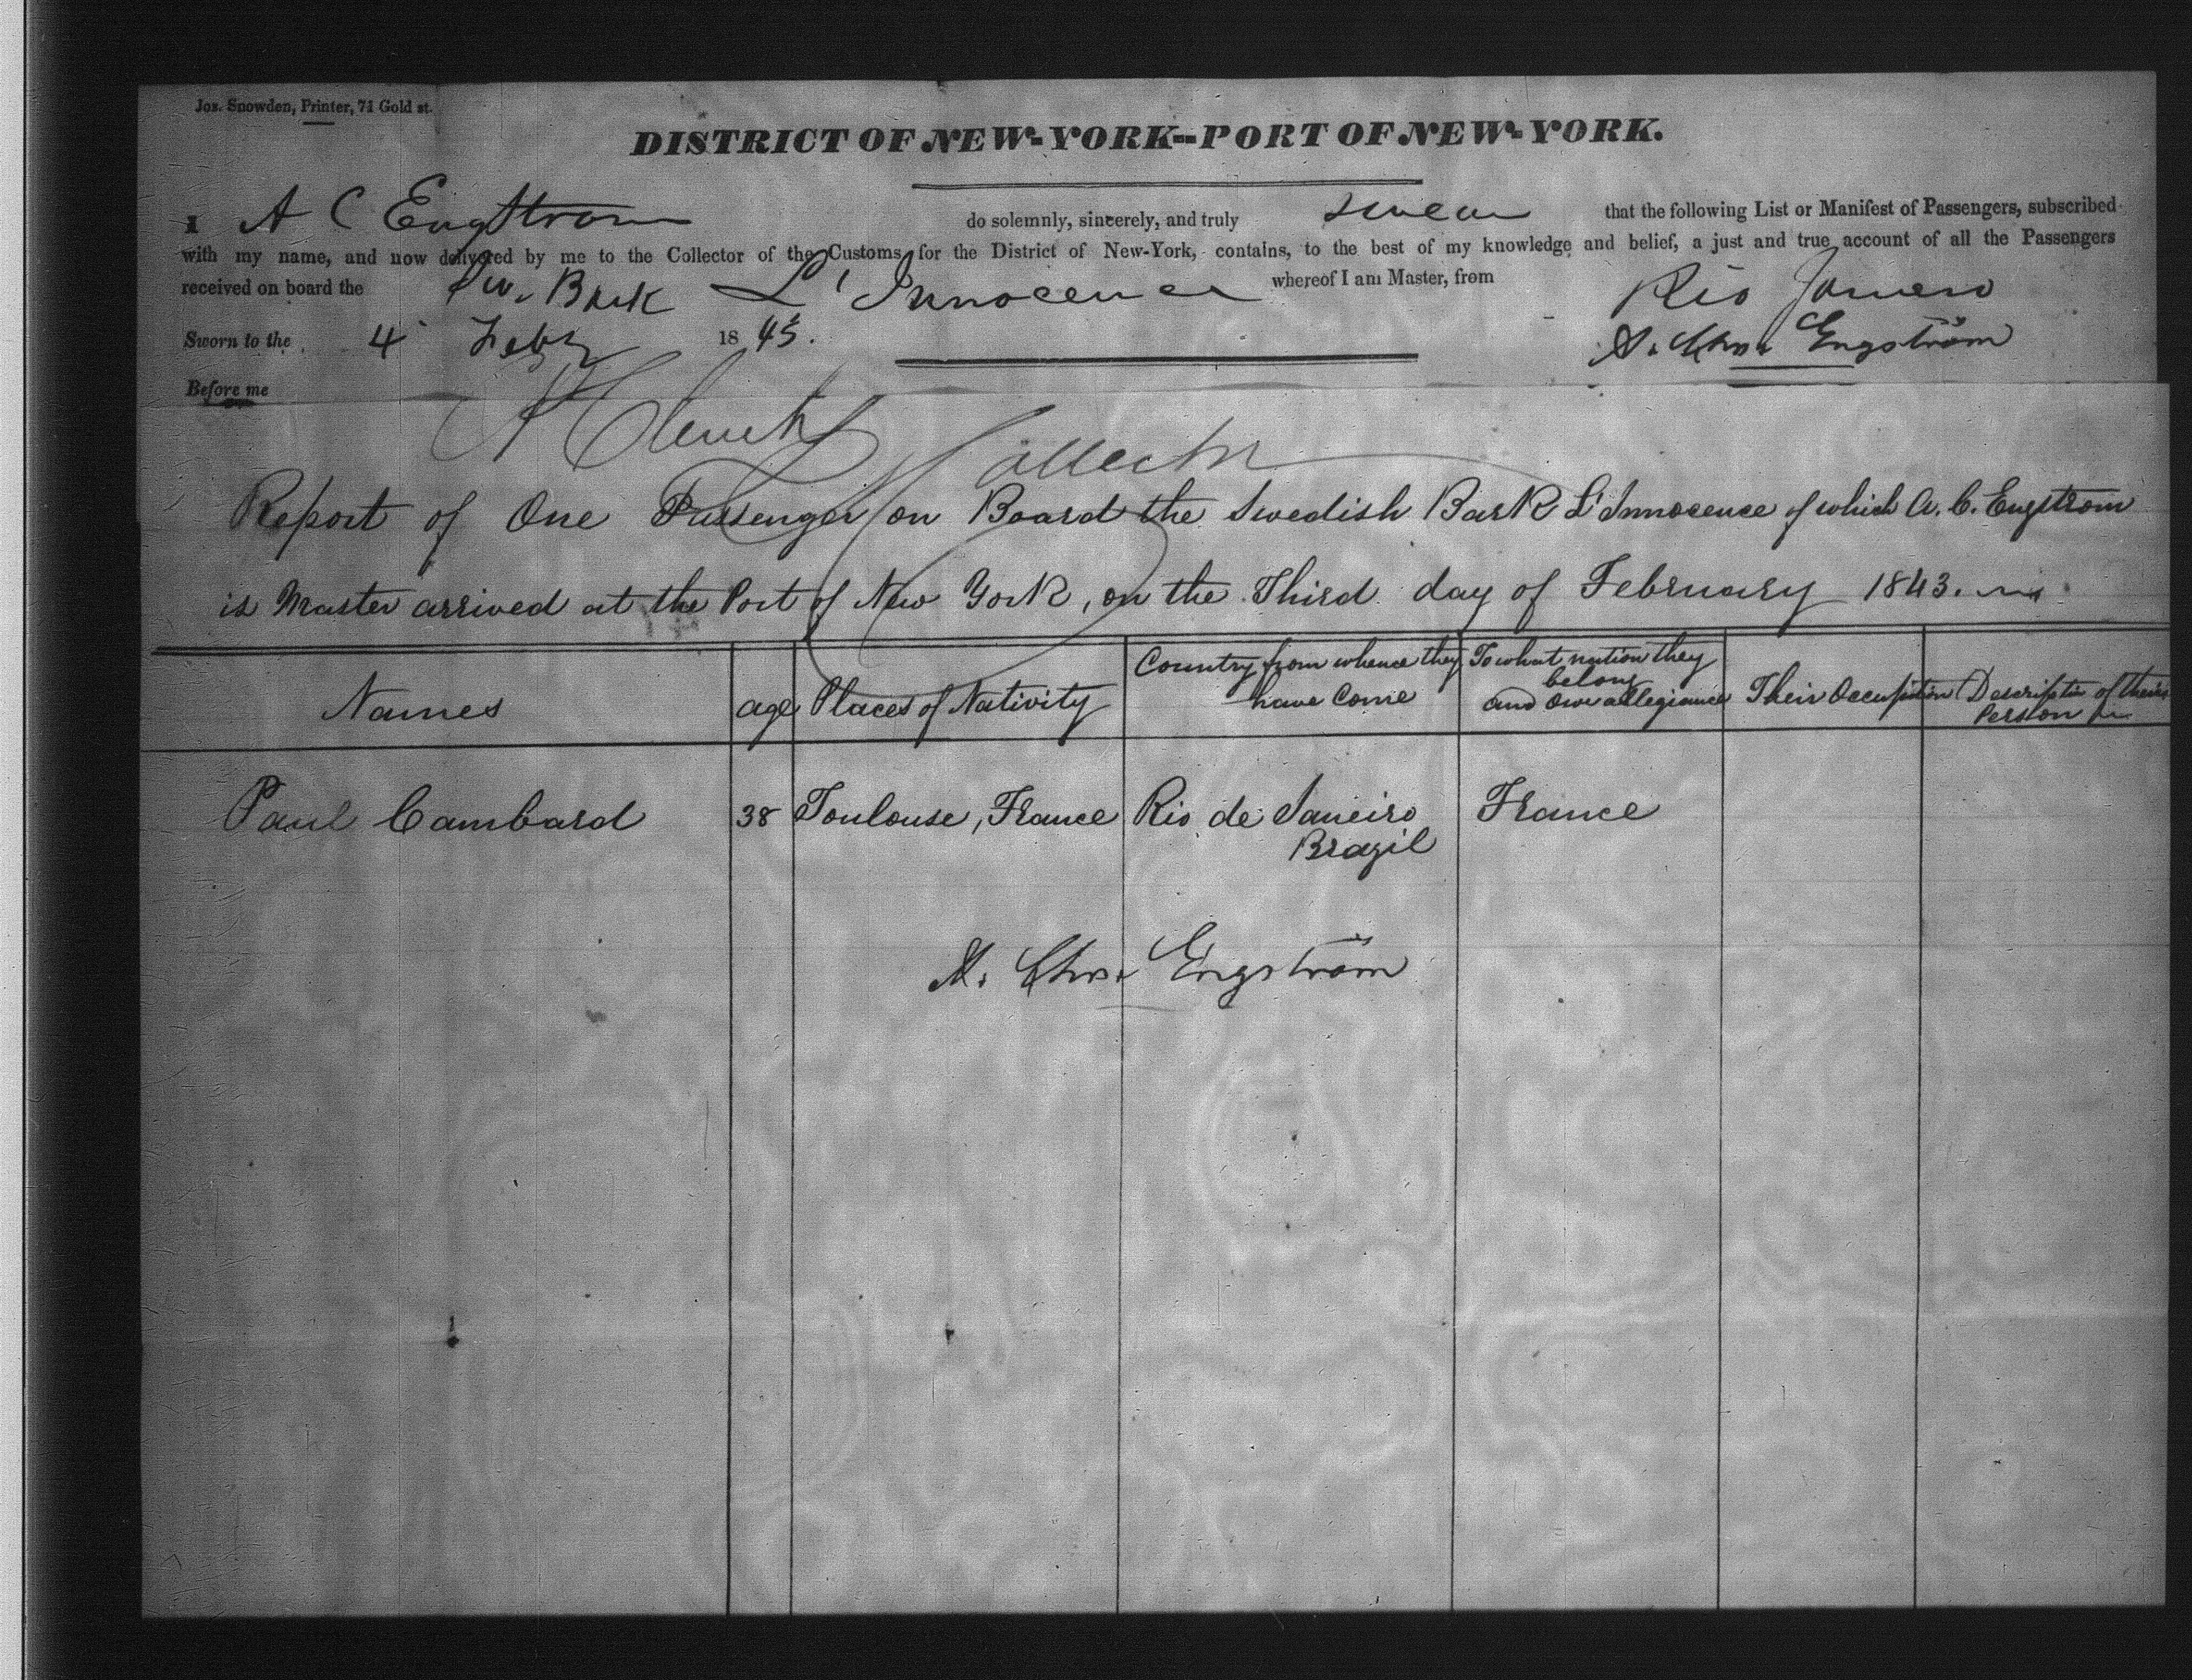 Jos. Snowden, Printer, 71 Gold st.
DISTRICT OF NEW-YORK--PORT OF NEW-YORK.
I A C Engstrom do solemnly, sincerely, and truly swear that the following List or Manifest of Passengers, subscribed
with my name, and now delivered by me to the Collector of the Customs for the District of New-York, contains, to the best of my knowledge and belief, a just and true account of all the Passengers
received on board the Sw. Bark L'Innocence whereof I am Master, from Rio Janero
Sworn to the 4 Feby 1843. A. Chr. Engström
Before me
Collector
Report of One Passenger on Board the Swedish Bark L'Innocence of which A. C. Engstrom
is Master arrived at the Port of New York, on the Third day of February 1843.
Names age Places of Nativity Country from whence they have Come To what nation they belong and owe allegiance Their Occupation Descriptin of their Person
Paul Cambard 38 Toulouse, France Rio de Janeiro Brazil France
A. Chr. Engström